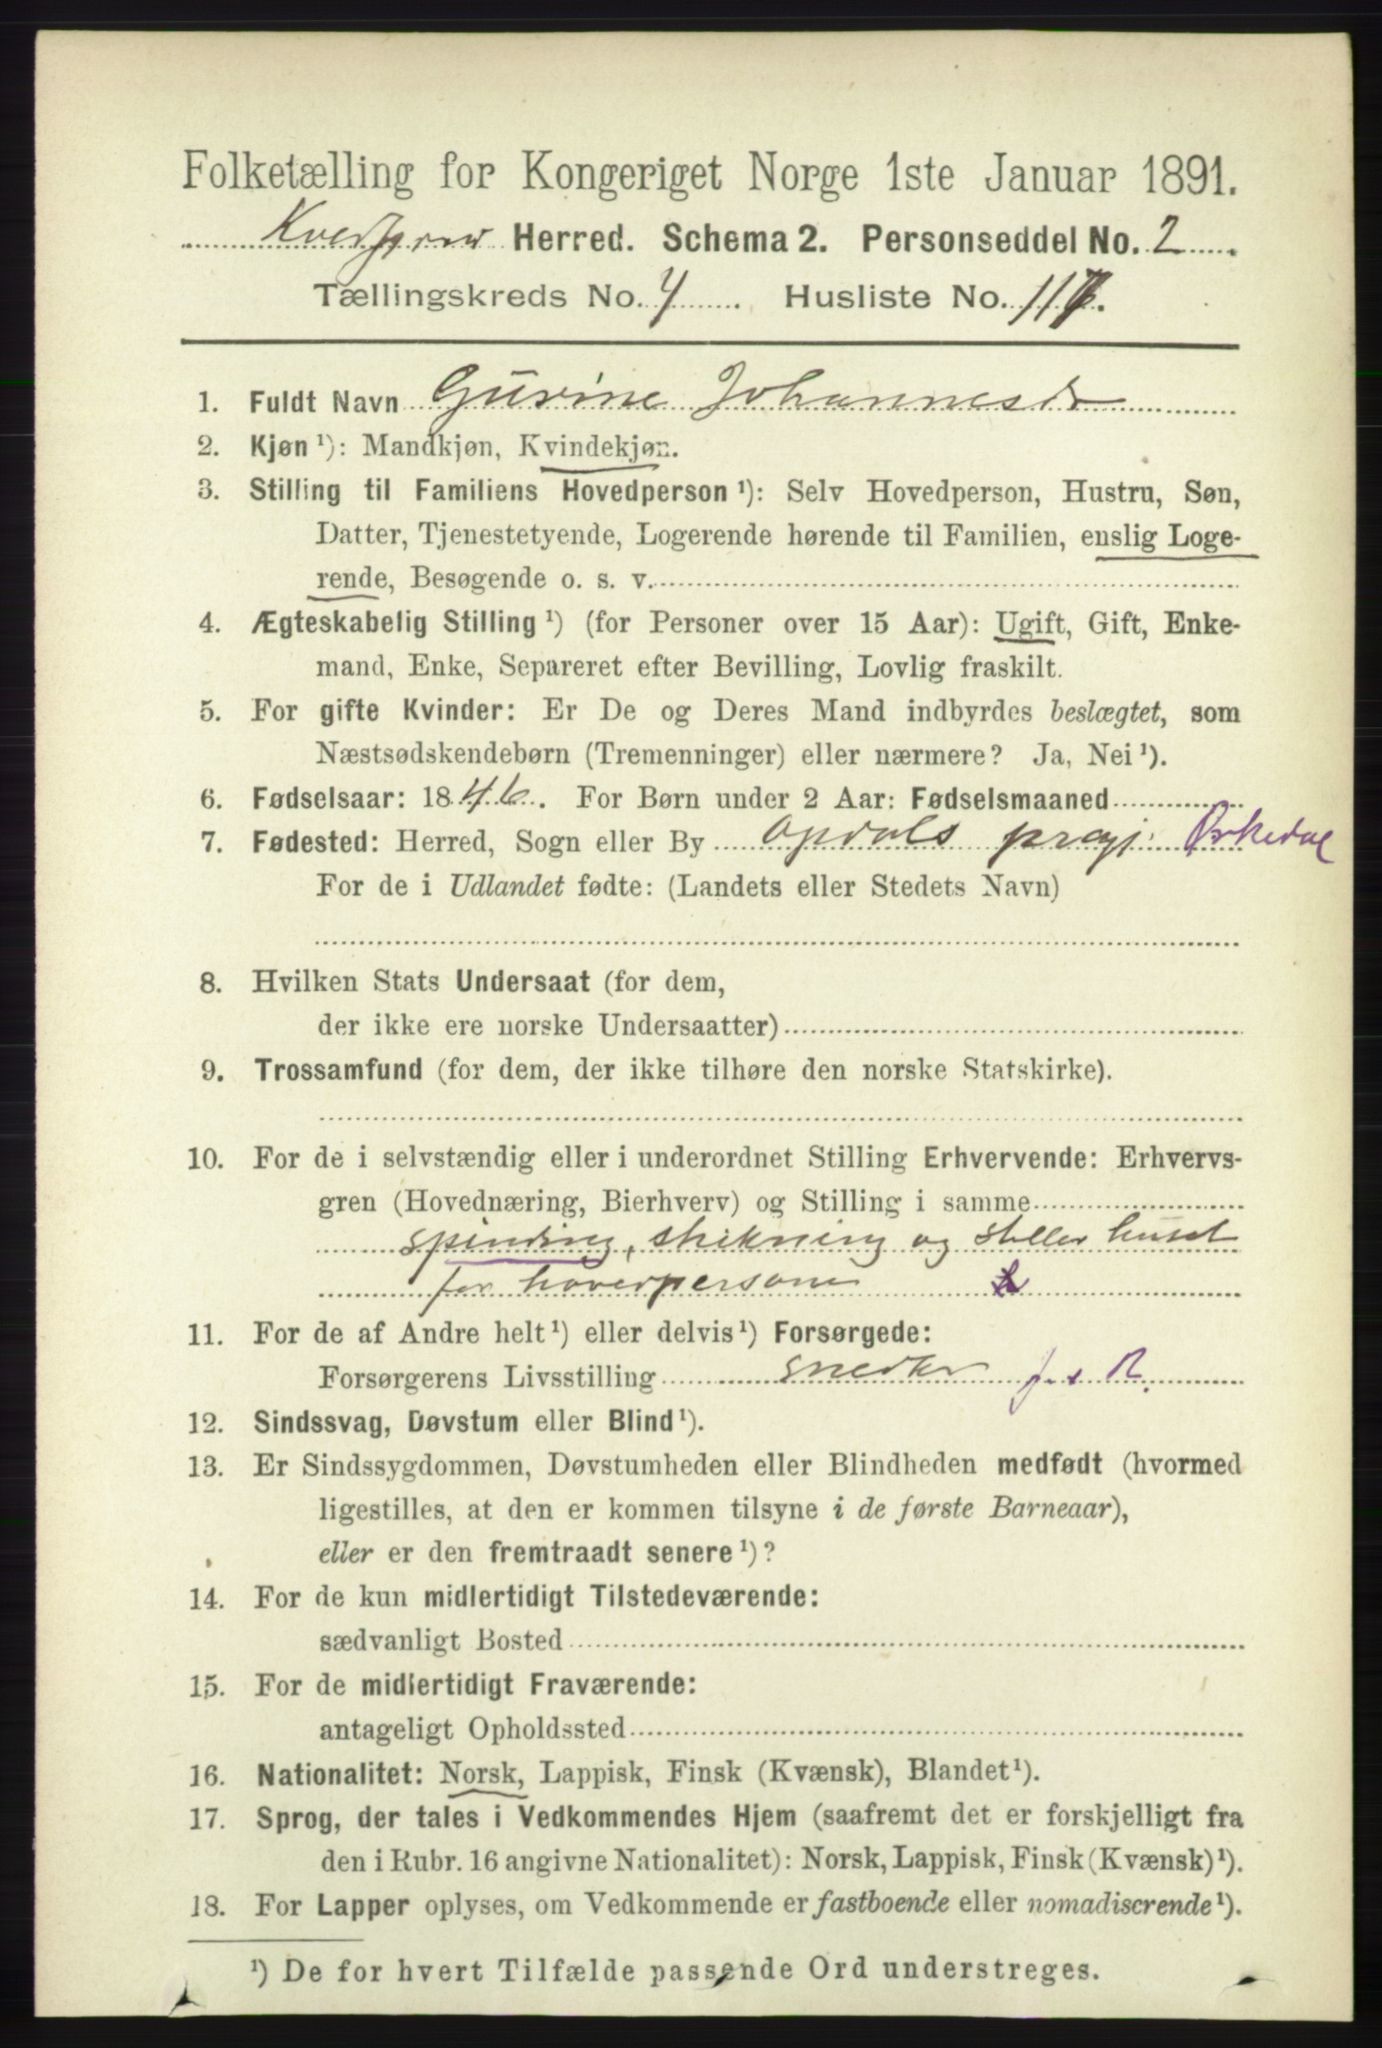 Folketælling for Kongeriget Norge 1ste Januar 1891.
Herred. Schema 2. Personseddel No. 2
Tællingskreds No. 4 Husliste No. 117.
1. Fuldt Navn Gurine Johannesd
2. Kjøn ¹): Mandkjøn, Kvindekjøn.
3. Stilling til Familiens Hovedperson ¹): Selv Hovedperson, Hustru, Søn,
Datter, Tjenestetyende, Logerende hørende til Familien, enslig Loge-
rende, Besøgende o. s. v.
4. Ægteskabelig Stilling ¹) (for Personer over 15 Aar): Ugift, Gift, Enke-
mand, Enke, Separeret efter Bevilling, Lovlig fraskilt.
5. For gifte Kvinder: Er De og Deres Mand indbyrdes beslægtet, som
Næstsødskendebørn (Tremenninger) eller nærmere? Ja, Nei ¹).
6. Fødselsaar: 1846. For Børn under 2 Aar: Fødselsmaaned
7. Fødested: Herred, Sogn eller By Opdals prgj. Ørkedal
For de i Udlandet fødte: (Landets eller Stedets Navn)
8. Hvilken Stats Undersaat (for dem,
der ikke ere norske Undersaatter)
9. Trossamfund (for dem, der ikke tilhøre den norske Statskirke).
10. For de i selvstændig eller i underordnet Stilling Erhvervende: Erhvervs-
gren (Hovednæring, Bierhverv) og Stilling i samme
spinding, strikning og steller huset
for hoverpersone
11. For de af Andre helt ¹) eller delvis ¹) Forsørgede:
Forsørgerens Livsstilling f. s R.
12. Sindssvag, Døvstum eller Blind ¹).
13. Er Sindssygdommen, Døvstumheden eller Blindheden medfødt (hvormed
ligestilles, at den er kommen tilsyne i de første Barneaar),
eller er den fremtraadt senere ¹)?
14. For de kun midlertidigt Tilstedeværende:
sædvanligt Bosted
15. For de midlertidigt Fraværende:
antageligt Opholdssted
16. Nationalitet: Norsk, Lappisk, Finsk (Kvænsk), Blandet ¹).
17. Sprog, der tales i Vedkommendes Hjem (saafremt det er forskjelligt fra
den i Rubr. 16 angivne Nationalitet): Norsk, Lappisk, Finsk (Kvænsk) ¹).
18. For Lapper oplyses, om Vedkommende er fastboende eller nomadiserende ¹).
¹) De for hvert Tilfælde passende Ord understreges.